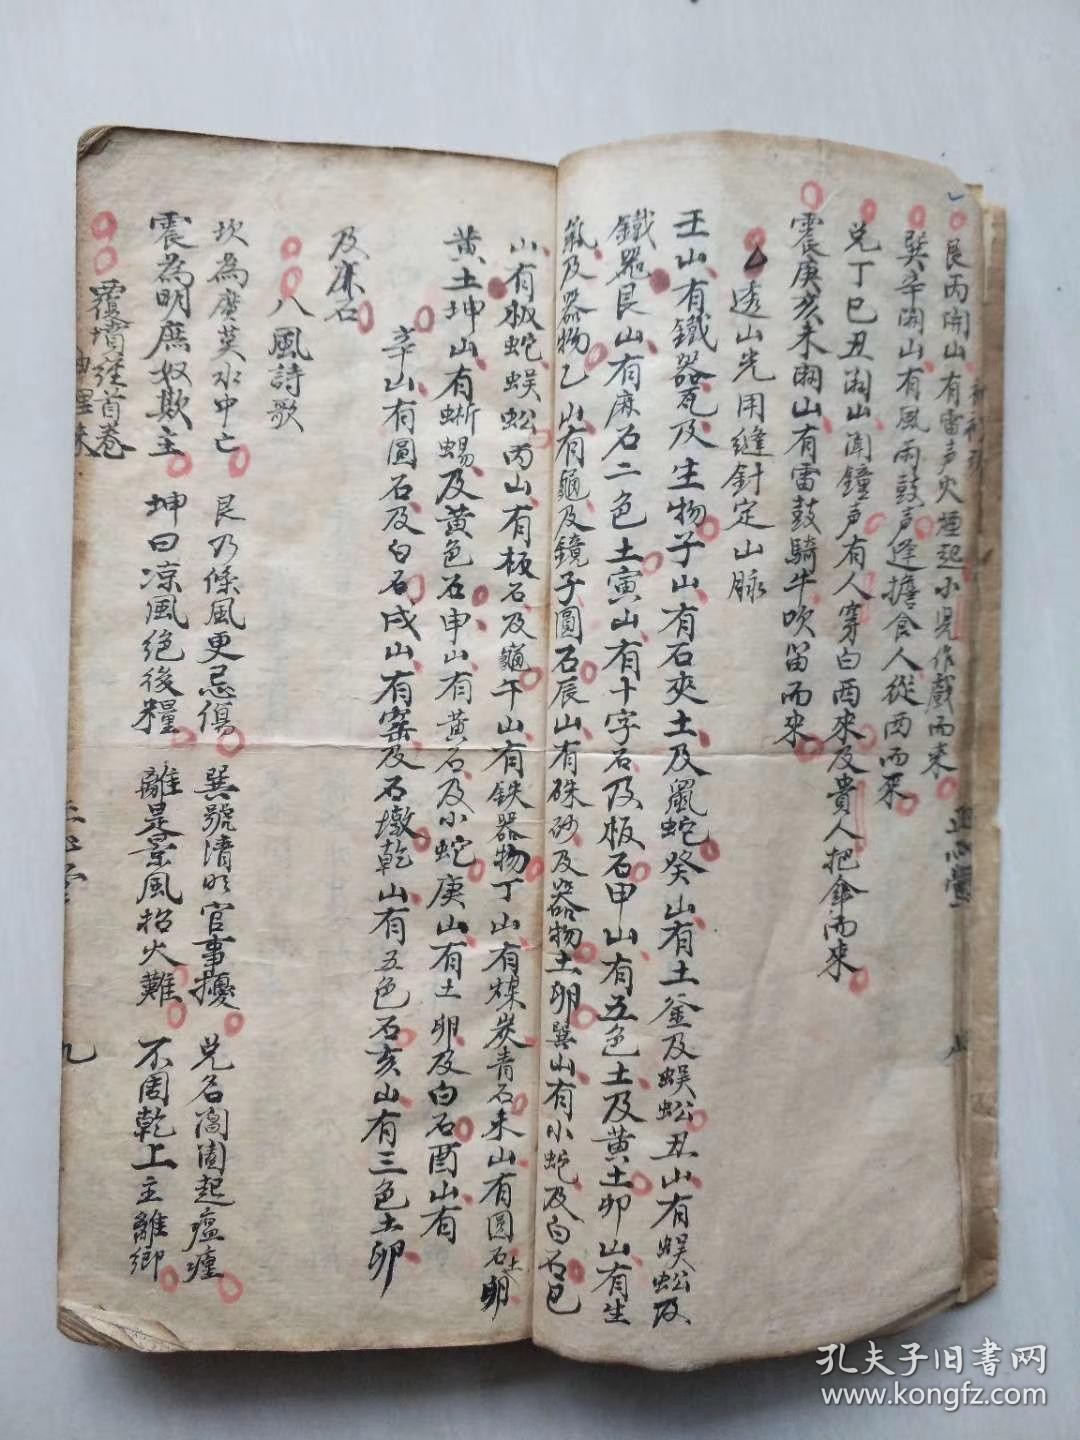 艮丙開山有雷声火烟起小児作戲而来
巽辛開山有風雨鼓声逢擔食人從西而来
兑丁巳丑開山聞鐘声有人穿白西來及貴人把傘而來
震庚亥未開山有雷鼓騎牛吹笛而來
透山光用縫針定山脉
壬山有鐵器瓦及生物子山有石夾土及鼠蛇癸山有土釜及蜈蚣丑山有蜈蚣及
鐵器艮山有麻石二色土寅山有十字石及板石甲山有五色土及黄土卯山有生
氣及器物乙山有龜及鏡子圓石辰山有硃砂及器物土卵巽山有小蛇及白石巳
山有板蛇蜈蚣丙山有板石及龜午山有鉄器物丁山有煤炭青石未山有圓石土卵
黄土坤山有蜥蜴及黄色石申山有黄石及小蛇庚山有土卵及白石酉山有
辛山有圓石及白石戌山有窯及石墩乾山有五色石亥山有三色土卵
及石
八風詩歌
坎為廣莫水中亡 艮乃條風更忌傷 巽號清明官事擾 兑名閶園起瘟瘟
震為明庶奴欺主 坤曰凉風絶後糧 離是景風招火難 不周乾上主離鄉
覆墳經首卷
九
孔夫子旧書网
www.kongfz.com